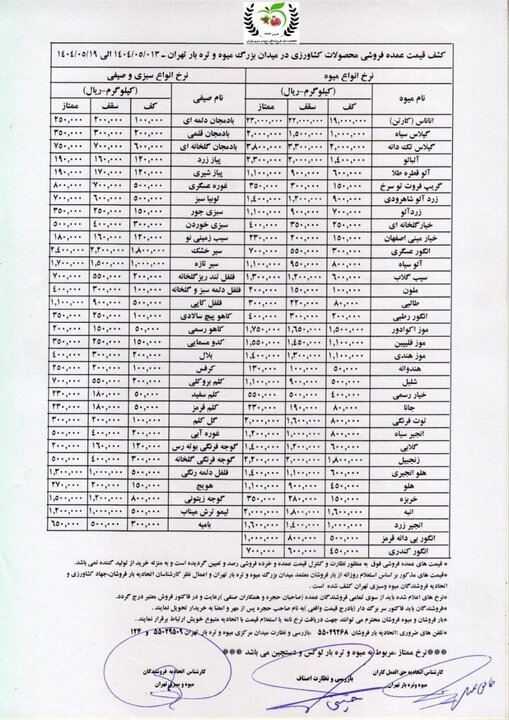 کشف قیمت عمده فروشی محصولات کشاورزی در میدان بزرگ میوه و تره بار تهران ـ ۱۴۰۴/۰۵/۰۱۳ الی ۱۴۰۴/۰۵/۱۹
نرخ انواع میوه نرخ انواع سبزی و صیفی
نام میوه (کیلوگرم-ریال) نام صیفی (کیلوگرم-ریال)
کف سقف ممتاز کف سقف ممتاز
آناناس (کارتن) ۱۹,۰۰۰,۰۰۰ ۲۲,۰۰۰,۰۰۰ ۲۳,۰۰۰,۰۰۰ بادمجان دلمه ای ۱۰۰,۰۰۰ ۲۰۰,۰۰۰ ۲۵۰,۰۰۰
گیلاس سیاه ۱,۰۰۰,۰۰۰ ۱,۵۰۰,۰۰۰ ۲,۰۰۰,۰۰۰ بادمجان قلمی ۲۰۰,۰۰۰ ۳۰۰,۰۰۰ ۳۵۰,۰۰۰
گیلاس تک دانه ۲,۰۰۰,۰۰۰ ۳,۳۰۰,۰۰۰ ۳,۸۰۰,۰۰۰ بادمجان گلخانه ای ۶۰۰,۰۰۰ ۷۰۰,۰۰۰ ۷۵۰,۰۰۰
آلبالو ۱,۴۰۰,۰۰۰ ۲,۰۰۰,۰۰۰ ۲,۳۰۰,۰۰۰ پیاز زرد ۱۲۰,۰۰۰ ۱۶۰,۰۰۰ ۱۹۰,۰۰۰
آلو قطره طلا ۶۰۰,۰۰۰ ۹۰۰,۰۰۰ ۱,۱۰۰,۰۰۰ پیاز شیری ۱۲۰,۰۰۰ ۱۷۰,۰۰۰ ۱۹۰,۰۰۰
گریپ فروت تو سرخ ۱۵۰,۰۰۰ ۳۰۰,۰۰۰ ۳۵۰,۰۰۰ غوره عسگری ۵۰۰,۰۰۰ ۷۰۰,۰۰۰ ۸۰۰,۰۰۰
زرد آلو شاهرودی ۹۰۰,۰۰۰ ۱,۲۰۰,۰۰۰ ۱,۴۰۰,۰۰۰ لوبیا سبز ۵۰۰,۰۰۰ ۶۰۰,۰۰۰ ۷۰۰,۰۰۰
زردآلو ۷۰۰,۰۰۰ ۹۰۰,۰۰۰ ۱,۱۰۰,۰۰۰ سبزی جور ۱۵۰,۰۰۰ ۲۵۰,۰۰۰ ۳۵۰,۰۰۰
خیارگلخانه ای ۲۵۰,۰۰۰ ۳۵۰,۰۰۰ ۴۰۰,۰۰۰ سبزی خوردن ۳۰۰,۰۰۰ ۴۰۰,۰۰۰ ۵۰۰,۰۰۰
خیار مینی اصفهان ۱۵۰,۰۰۰ ۲۰۰,۰۰۰ ۲۳۰,۰۰۰ سیب زمینی نو ۱۲۰,۰۰۰ ۱۶۰,۰۰۰ ۱۸۰,۰۰۰
انگور عسگری ۳۰۰,۰۰۰ ۵۵۰,۰۰۰ ۷۰۰,۰۰۰ سیر خشک ۱,۸۰۰,۰۰۰ ۲,۲۰۰,۰۰۰ ۲,۴۰۰,۰۰۰
آلو سیاه ۸۰۰,۰۰۰ ۹۵۰,۰۰۰ ۱,۱۰۰,۰۰۰ سیر تازه ۱,۰۰۰,۰۰۰ ۱,۵۰۰,۰۰۰ ۱,۷۰۰,۰۰۰
سیب گلاب ۶۰۰,۰۰۰ ۱,۲۰۰,۰۰۰ ۱,۳۰۰,۰۰۰ فلفل تند ریزگلخانه ۲۰۰,۰۰۰ ۵۵۰,۰۰۰ ۷۰۰,۰۰۰
ملون ۱۰۰,۰۰۰ ۲۰۰,۰۰۰ ۲۳۰,۰۰۰ فلفل دلمه سبز و گلخانه ۲۰۰,۰۰۰ ۳۰۰,۰۰۰ ۴۰۰,۰۰۰
طالبی ۸۰,۰۰۰ ۲۲۰,۰۰۰ ۳۰۰,۰۰۰ فلفل کاپی ۵۰۰,۰۰۰ ۹۰۰,۰۰۰ ۱,۱۰۰,۰۰۰
انگور رطبی ۲۰۰,۰۰۰ ۳۰۰,۰۰۰ ۴۰۰,۰۰۰ کاهو پیچ سالادی ۱۰۰,۰۰۰ ۲۵۰,۰۰۰ ۳۵۰,۰۰۰
موز اکوادور ۱,۵۰۰,۰۰۰ ۱,۶۵۰,۰۰۰ ۱,۷۵۰,۰۰۰ کاهو رسمی ۵۰,۰۰۰ ۱۵۰,۰۰۰ ۲۰۰,۰۰۰
موز فلیپین ۱,۴۰۰,۰۰۰ ۱,۴۵۰,۰۰۰ ۱,۵۵۰,۰۰۰ کدو مسمایی ۱۵۰,۰۰۰ ۲۵۰,۰۰۰ ۳۵۰,۰۰۰
موز هندی ۱,۲۰۰,۰۰۰ ۱,۳۰۰,۰۰۰ ۱,۴۰۰,۰۰۰ بلال ۲۰۰,۰۰۰ ۳۰۰,۰۰۰ ۴۰۰,۰۰۰
هندوانه ۵۰,۰۰۰ ۱۰۰,۰۰۰ ۱۳۰,۰۰۰ کرفس ۱۰۰,۰۰۰ ۲۰۰,۰۰۰ ۲۵۰,۰۰۰
شلیل ۵۰۰,۰۰۰ ۹۰۰,۰۰۰ ۱,۱۰۰,۰۰۰ کلم بروکلی ۲۰۰,۰۰۰ ۵۵۰,۰۰۰ ۷۰۰,۰۰۰
خیار رسمی ۴۰۰,۰۰۰ ۵۰۰,۰۰۰ ۵۵۰,۰۰۰ کلم سفید ۵۰,۰۰۰ ۱۸۰,۰۰۰ ۲۳۰,۰۰۰
جانا ۸۰,۰۰۰ ۱۹۰,۰۰۰ ۲۳۰,۰۰۰ کلم قرمز ۵۰,۰۰۰ ۱۸۰,۰۰۰ ۲۳۰,۰۰۰
توت فرنگی ۸۰۰,۰۰۰ ۱,۶۰۰,۰۰۰ ۲,۰۰۰,۰۰۰ گل کلم ۱۰۰,۰۰۰ ۲۰۰,۰۰۰ ۳۰۰,۰۰۰
انجیر سیاه ۵۰۰,۰۰۰ ۱,۰۰۰,۰۰۰ ۱,۲۰۰,۰۰۰ غوره آبی ۲۰۰,۰۰۰ ۴۰۰,۰۰۰ ۵۰۰,۰۰۰
گلابی ۶۰۰,۰۰۰ ۱,۲۰۰,۰۰۰ ۱,۴۰۰,۰۰۰ گوجه فرنگی بوته رس ۱۲۰,۰۰۰ ۱۶۰,۰۰۰ ۲۰۰,۰۰۰
زنجبیل ۱,۸۰۰,۰۰۰ ۲,۰۰۰,۰۰۰ ۲,۲۰۰,۰۰۰ گوجه فرنگی گلخانه ۳۰۰,۰۰۰ ۴۰۰,۰۰۰ ۵۰۰,۰۰۰
هلو انجیری ۶۰۰,۰۰۰ ۱,۱۰۰,۰۰۰ ۱,۴۰۰,۰۰۰ فلفل دلمه رنگی ۵۰۰,۰۰۰ ۱,۰۰۰,۰۰۰ ۱,۳۰۰,۰۰۰
هلو ۴۰۰,۰۰۰ ۹۰۰,۰۰۰ ۱,۱۰۰,۰۰۰ هویج ۱۵۰,۰۰۰ ۲۰۰,۰۰۰ ۲۷۰,۰۰۰
خربزه ۱۵۰,۰۰۰ ۲۸۰,۰۰۰ ۳۵۰,۰۰۰ گوجه زیتونی ۸۰۰,۰۰۰ ۱,۲۰۰,۰۰۰ ۱,۵۰۰,۰۰۰
انبه ۱,۶۰۰,۰۰۰ ۱,۸۰۰,۰۰۰ ۲,۰۰۰,۰۰۰ لیمو ترش میناب ۵۰۰,۰۰۰ ۱,۰۰۰,۰۰۰ ۱,۲۰۰,۰۰۰
انجیر زرد ۱,۰۰۰,۰۰۰ ۱,۴۰۰,۰۰۰ ۱,۶۰۰,۰۰۰ بامیه ۳۰۰,۰۰۰ ۵۰۰,۰۰۰ ۶۵۰,۰۰۰
انگور بی دانه قرمز ۵۰۰,۰۰۰ ۸۰۰,۰۰۰ ۱,۰۰۰,۰۰۰
انگور کندری ۴۵۰,۰۰۰ ۶۰۰,۰۰۰ ۷۰۰,۰۰۰
* قیمت های عمده فروشی فوق به منظور نظارت و کنترل قیمت عمده و خرده فروشی رصد و تعیین گردیده است و به منزله خرید از تولید کننده نمی باشد.
*قیمت های مذکور بر اساس استعلام روزانه از بار فروشان معتمد میدان بزرگ میوه و تره بار تهران و اعمال نظر کارشناسان اتحادیه بار فروشان،جهاد کشاورزی و اتحادیه فروشندگان میوه وسبزی تهران کشف شده است.
*نرخ های اعلام شده باید از سوی تمامی فروشندگان عمده (صاحبان حجره و همکاران صنفی )رعایت و در فاکتور فروش معتبر درج گردد.
*فروشندگان باید فاکتور سر برگ دار (بادرج قیمت واقعی )به نام صاحب حجره پس از مهر و امضا به خریدار تحویل نمایند.
*بار فروشان و میوه فروشان محترم می توانند جهت دریافت نرخ نامه یا استعلام قیمت با اتحادیه متبوع خویش ارتباط برقرار نمایند .
*تلفن های ضروری: اتحادیه بار فروشان ۵۵۰۲۹۲۶۸ بازرسی و نظارت میدان مرکزی میوه و تره بار تهران ۵۵۰۲۹۵۰۹ و ۱۲۴
***نرخ ممتاز ،مربوط به میوه و تره بار لوکس و دستچین می باشد ***
کارشناس اتحادیه حق العمل کاران میوه وتره بار تهران
بازرسی و نظارت اصناف
کارشناس اتحادیه فروشندگان میوه و سبزی تهران